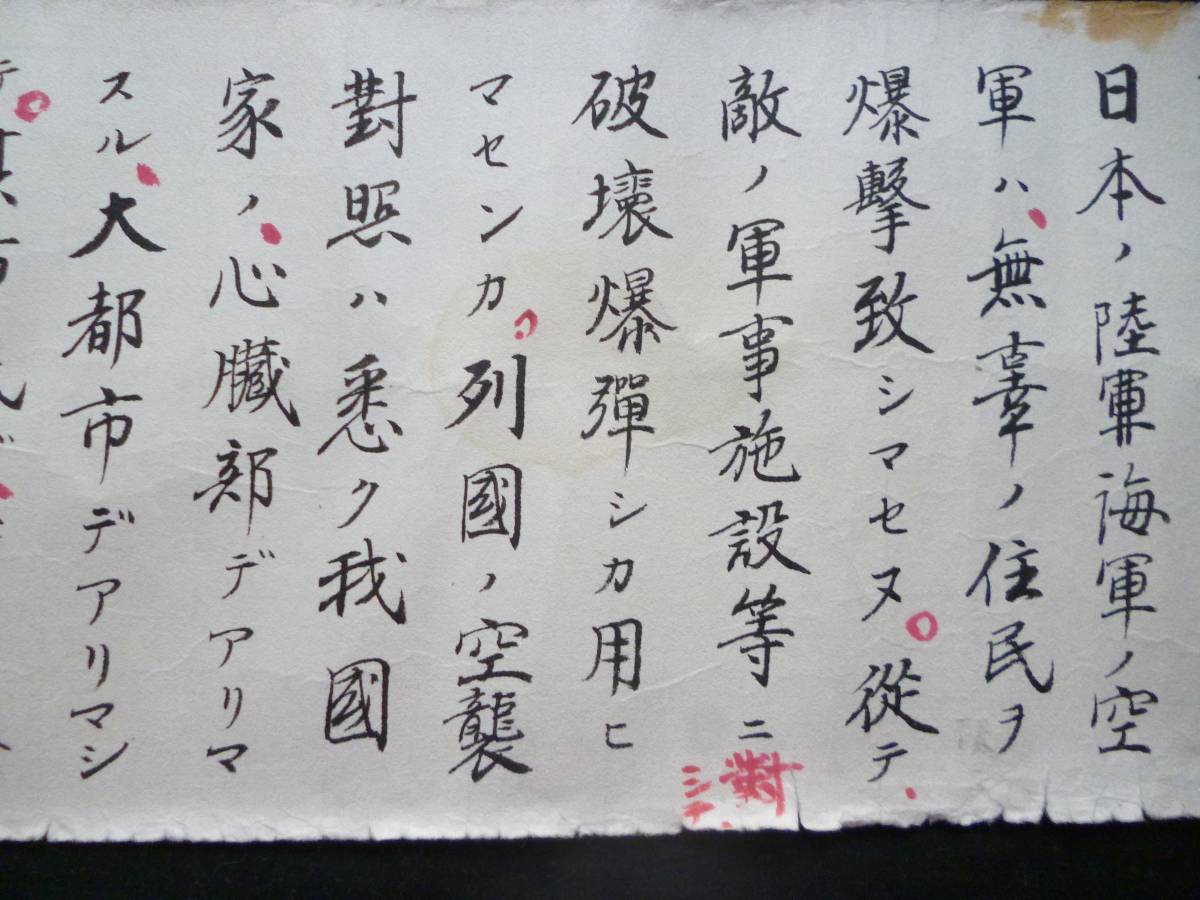 日本ノ陸軍海軍ノ空
軍ハ、無辜ノ住民ヲ
爆擊致シマセヌ。從テ、
敵ノ軍事施設等ニ對シテ、
破壞爆彈シカ用ヒ
マセンカ。列國ノ空襲
對照ハ悉ク我國
家ノ、心臓部デアリマ
スル、大都市デアリマシ